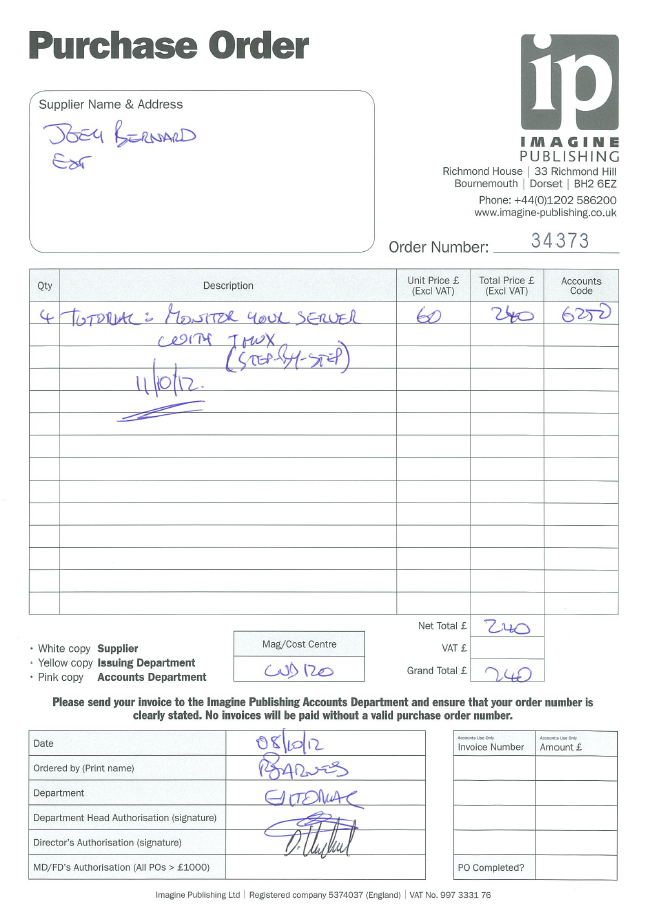 Purchase Order
Supplier Name & Address
JOEY BERNARD
EXT
ip
IMAGINE
PUBLISHING
Richmond House | 33 Richmond Hill
Bournemouth | Dorset | BH2 6EZ
Phone: +44(0)1202 586200
www.imagine-publishing.co.uk
Order Number: 34373
Qty Description Unit Price £ (Excl VAT) Total Price £ (Excl VAT) Accounts Code
4 TUTORIAL: MONITOR YOUR SERVER 60 240 6250
WITH TMUX
(STEP-BY-STEP)
11/10/12.
Net Total £ 240
VAT £
Grand Total £ 240
• White copy Supplier
• Yellow copy Issuing Department
• Pink copy Accounts Department
Mag/Cost Centre
LUD 120
Please send your invoice to the Imagine Publishing Accounts Department and ensure that your order number is
clearly stated. No invoices will be paid without a valid purchase order number.
Date 08/10/12
Ordered by (Print name) R BARNES
Department EDITORIAL
Department Head Authorisation (signature)
Director's Authorisation (signature)
MD/FD's Authorisation (All POs > £1000)
Accounts Use Only Accounts Use Only
Invoice Number Amount £
PO Completed?
Imagine Publishing Ltd | Registered company 5374037 (England) | VAT No. 997 3331 76